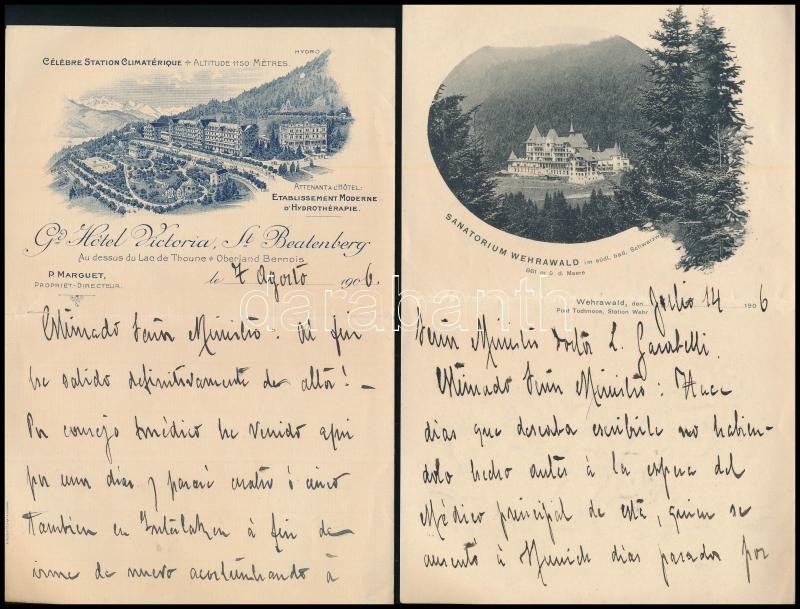 HYDRO
CÉLÈBRE STATION CLIMATÉRIQUE ✦ ALTITUDE 1150 MÈTRES.
ATTENANT À L'HÔTEL:
ETABLISSEMENT MODERNE
D'HYDROTHÉRAPIE.
Gd. Hôtel Victoria, St Beatenberg
Au dessus du Lac de Thoune ✦ Oberland Bernois
P. MARGUET,
PROPRIÉT-DIRECTEUR.
le 7 Agosto 1906.
Estimado Señor Ministro: Al fin
he salido definitivamente de alta! —
Por consejo médico he venido aqui
por unos dias y pasaré cuatro ó cinco
tambien en Interlaken á fin de
irme de nuevo acostumbrando á
SANATORIUM WEHRAWALD im südl. bad. Schwarzwald
861 m ü. d. Meere
Wehrawald, den Julio 14 1906
Post Todtmoos, Station Wehr
Señor Ministro doctor L. Garabelli.
Estimado Señor Ministro: Hace
dias que deseaba escribirle no habien-
dolo hecho antes á la espera del
Médico principal de esta, quien se
ausentó á Munich dias pasados por
darabanth